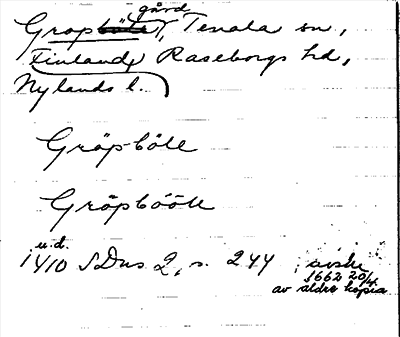 gård
Gropböle, Tenala sn,
Finland, Raseborgs hd,
Nylands l.
Gröpböle
Gröpbööle
u.d.
1410 SDns 2, s. 244, avskr
1662 20/4
av äldre kopia